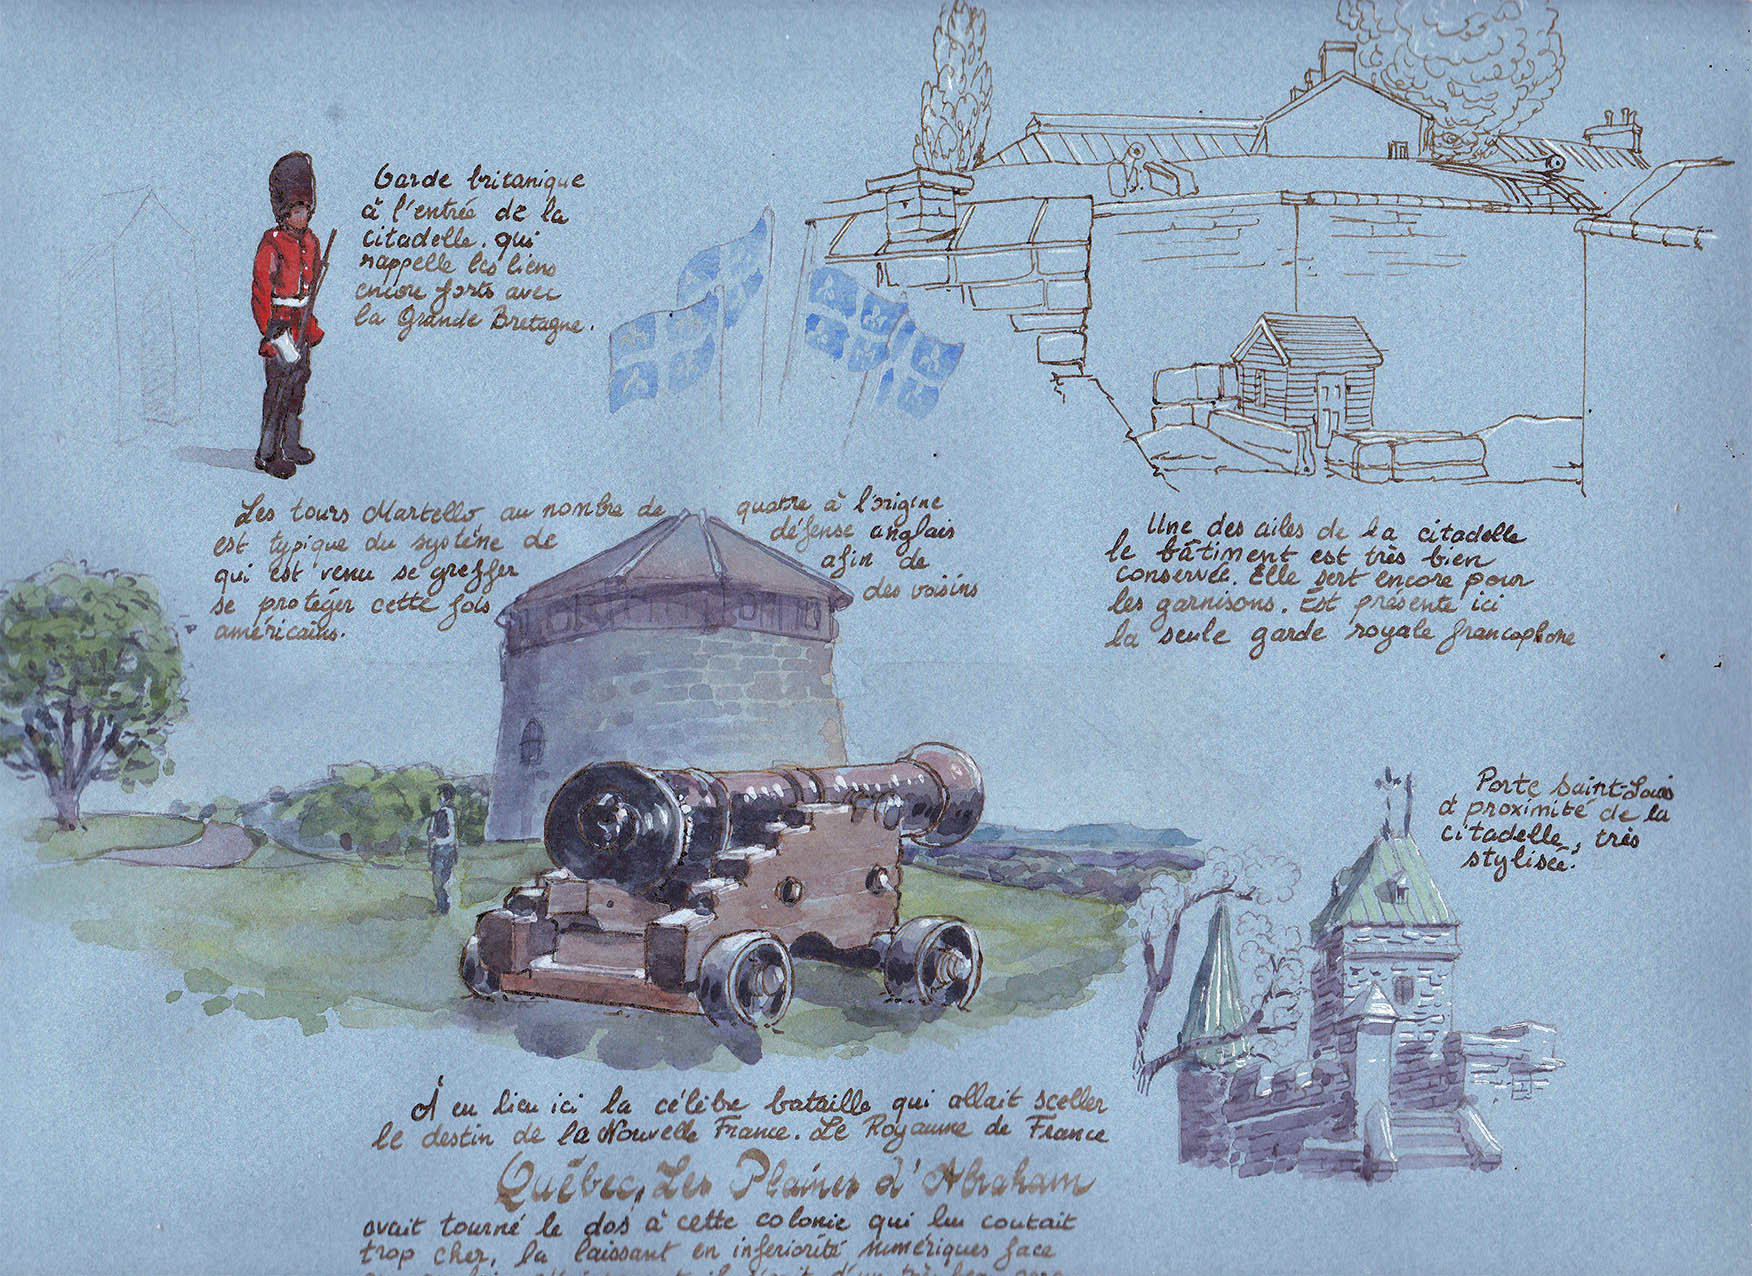 Garde britanique
à l'entrée de la
citadelle. qui
rappelle les liens
encore forts avec
la Grande Bretagne.
Les tours Martello au nombre de quatre à l'origine
est typique du système de défense anglais
qui est venu se greffer afin de
se protéger cette fois des voisins
américains.
Une des ailes de la citadelle
le bâtiment est très bien
conservée. Elle sert encore pour
les garnisons. Est présente ici
la seule garde royale francophone
Porte Saint-Louis
à proximité de la
citadelle, très
stylisée.
A eu lieu ici la célèbre bataille qui allait sceller
le destin de la Nouvelle France. Le Royaume de France
Québec, Les Plaines d'Abraham
avait tourné le dos à cette colonie qui lui coutait
trop cher, la laissant en inferiorité numériques face